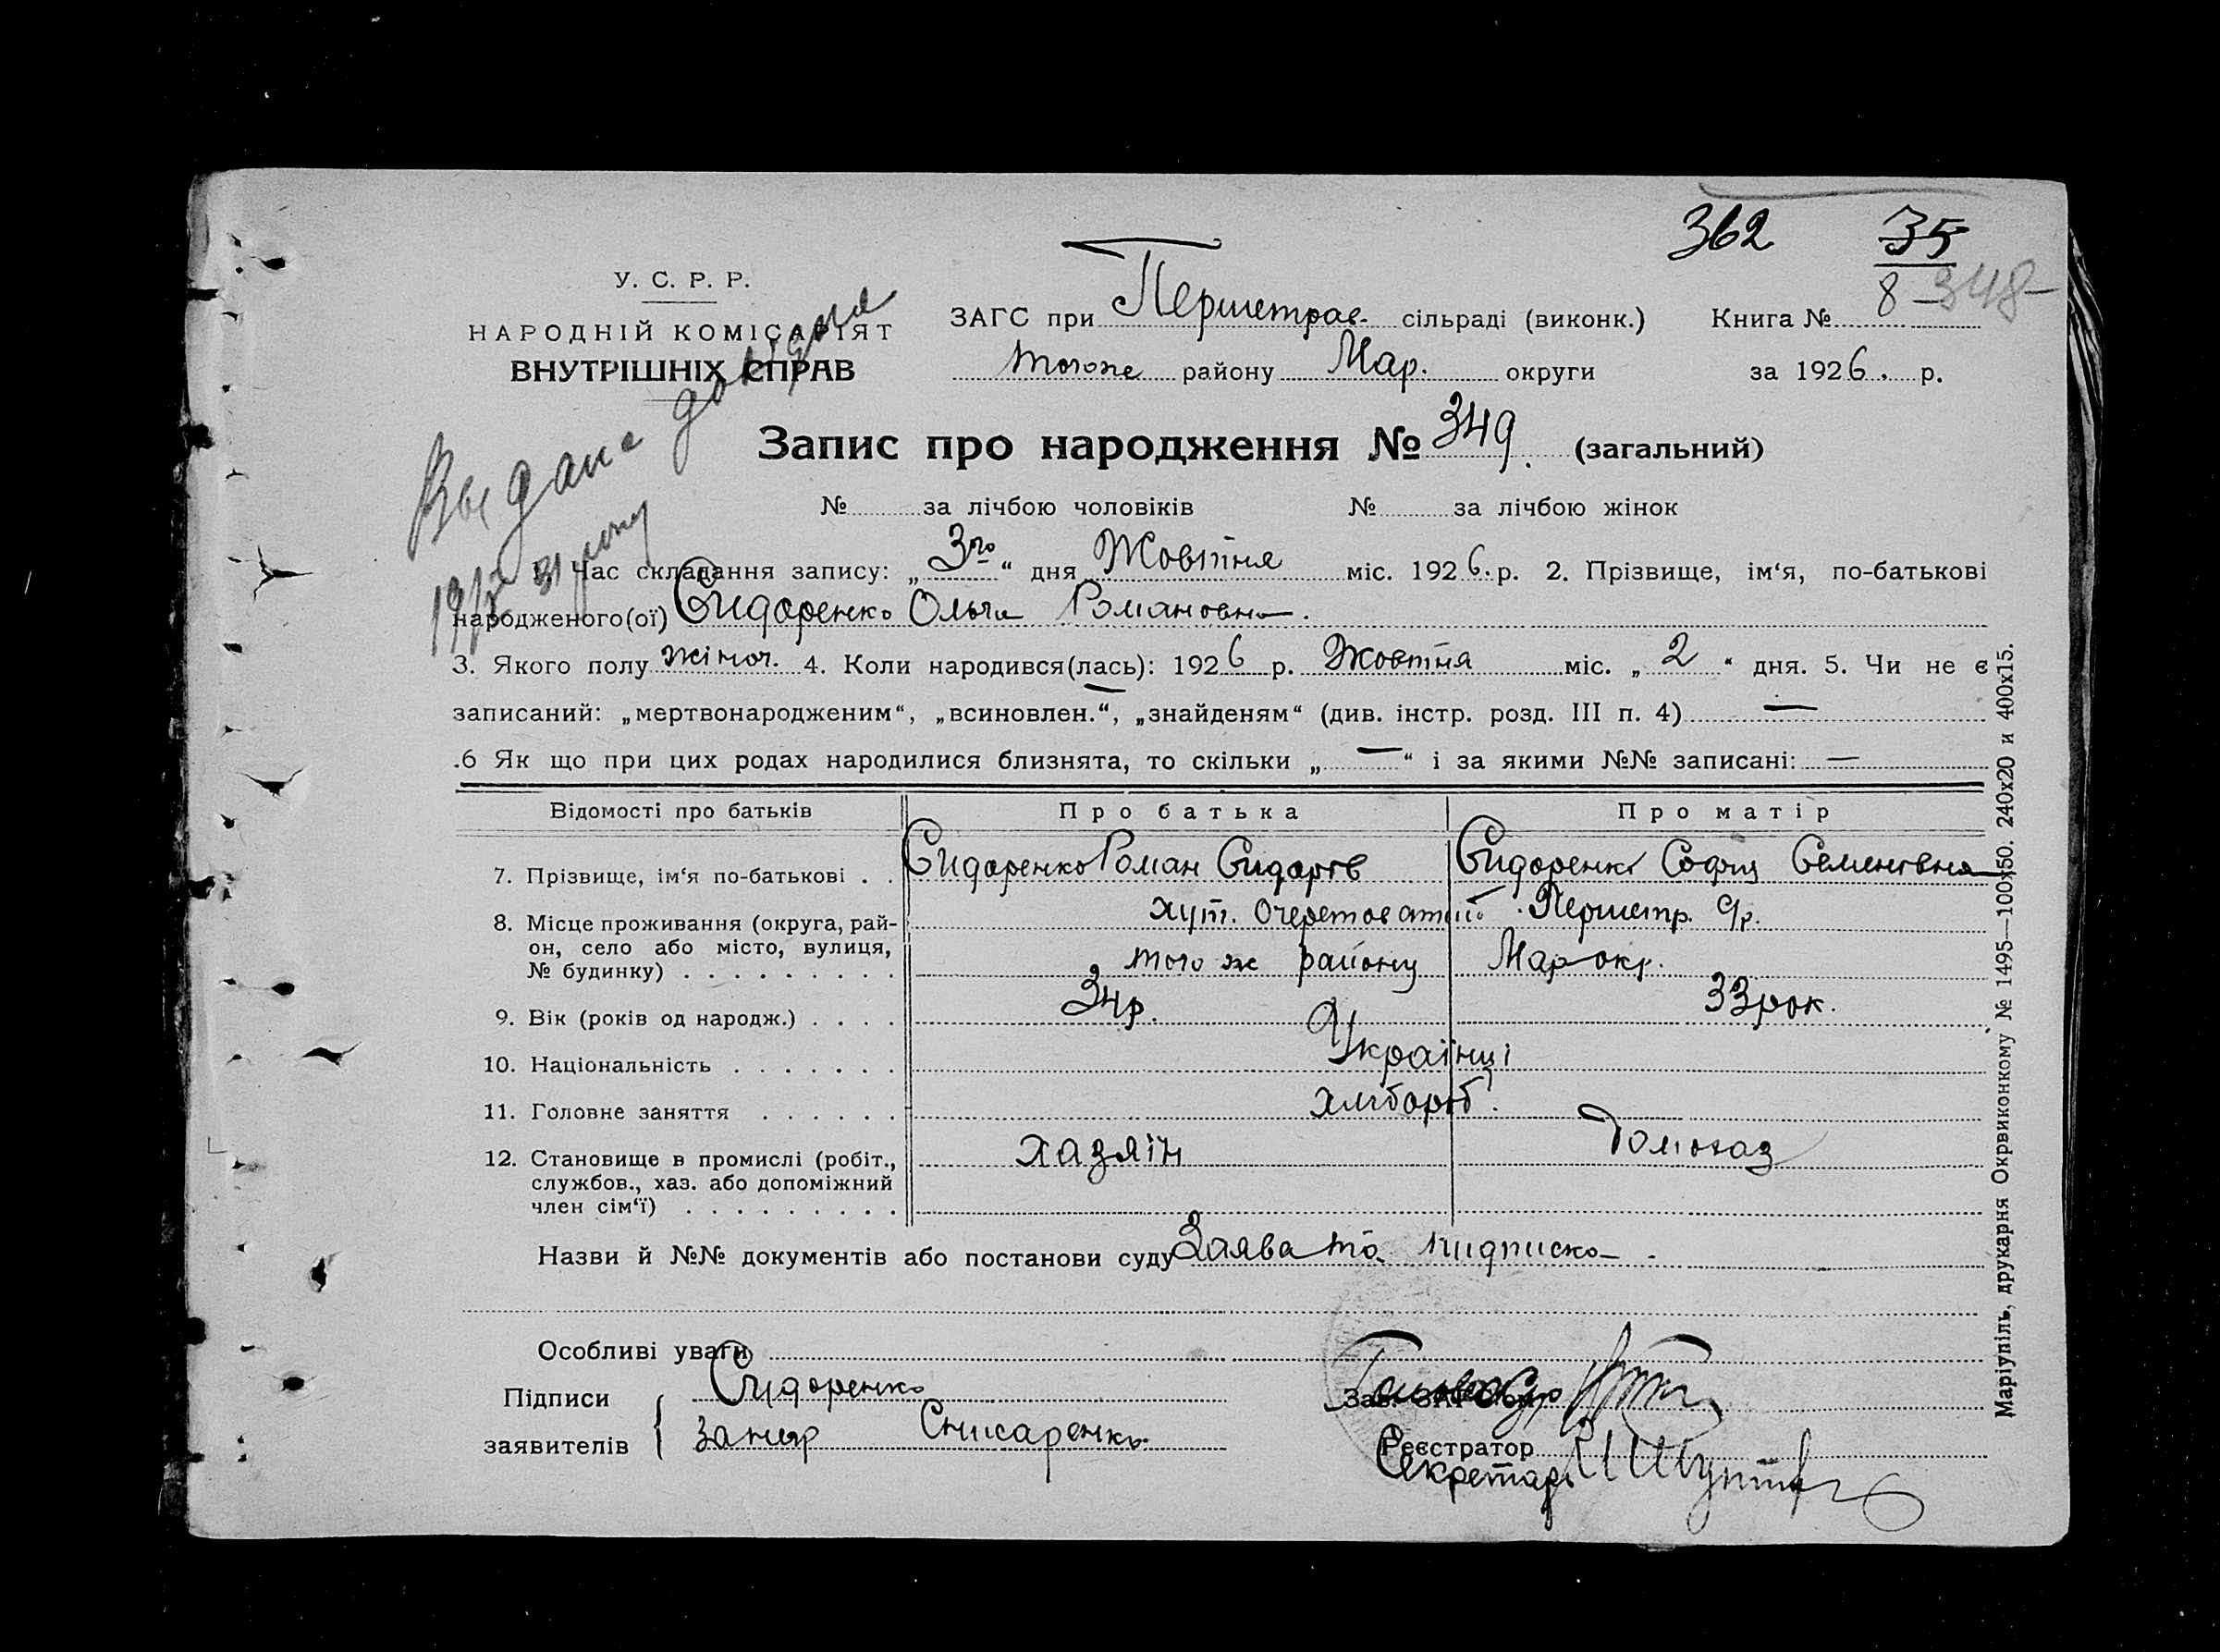 362 35
8 348
У. С. Р. Р.
НАРОДНІЙ КОМІСАРІЯТ
ВНУТРІШНІХ СПРАВ
ЗАГС при Першетрав. сільраді (виконк.) Книга № 8
тогоже району Мар. округи за 1926. р.
Запис про народження № 349. (загальний)
№ за лічбою чоловіків № за лічбою жінок
Выдана
31 року
1. Час складання запису: „ 3го “ дня Жовтня міс. 1926. р. 2. Прізвище, ім‘я, по-батькові
народженого(ої) Сидоренко Ольга Романовна.
3. Якого полу жіноч. 4. Коли народився(лась): 1926 р. Жовтня міс. „ 2 “ дня. 5. Чи не є
записаний: „мертвонародженим“, „всиновлен.“, „знайденям“ (див. інстр. розд. III п. 4) —
.6 Як що при цих родах народилися близнята, то скільки „ — “ і за якими №№ записані: —
Відомості про батьків Про батька Про матір
7. Прізвище, ім‘я по-батькові . . Сидоренко Роман Сидорів Сидоренко Софія Семенівна
8. Місце проживання (округа, рай- хут. Очеретоватий Першетр. с/р.
он, село або місто, вулиця,
№ будинку) . . . . . . . . . того ж району Мар окр.
9. Вік (років од народж.) . . . . 34 р. 33 рок.
10. Національність . . . . . . . Українці
11. Головне заняття . . . . . . хлібороб.
12. Становище в промислі (робіт., хазяїн Домохаз
службов., хаз. або допоміжний
член сім‘ї) . . . . . . . . .
Назви й №№ документів або постанови суду Заява та підписка.
Особливі уваги
Підписи Сидоренко Зав. ЗАГС‘ом
заявителів за нєгр Снисаренко Реєстратор
Секретарь
Маріупіль, друкарня Окрвиконкому № 1495—100х50. 240х20 и 400х15.